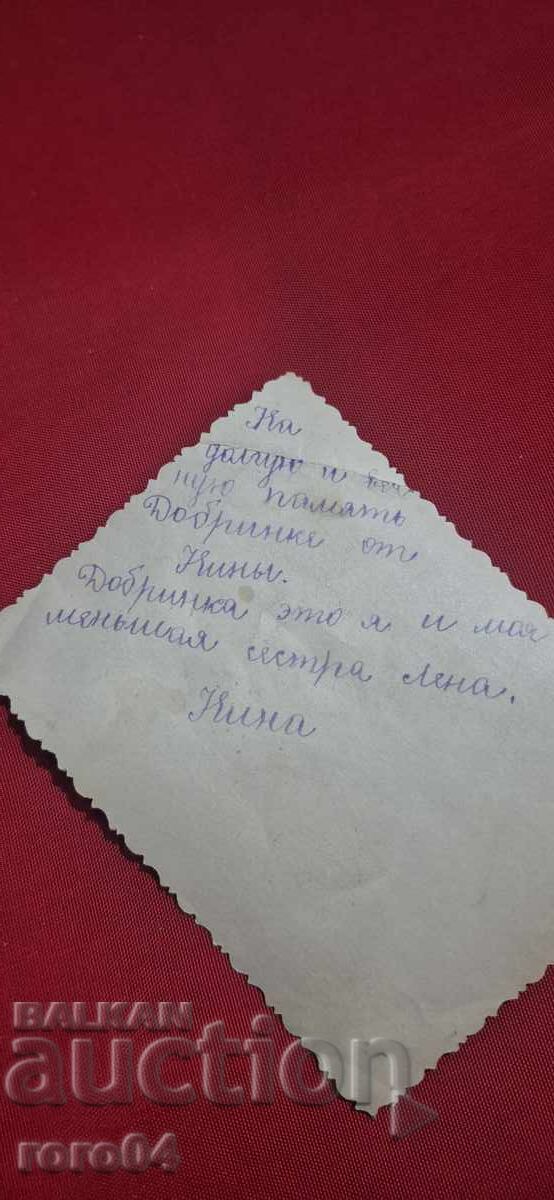 На
долгую и веч
ную память
Добринке от
Нины.
Добринка это я и моя
меньшая сестра Лена.
Нина
BALKAN
auction
roro04